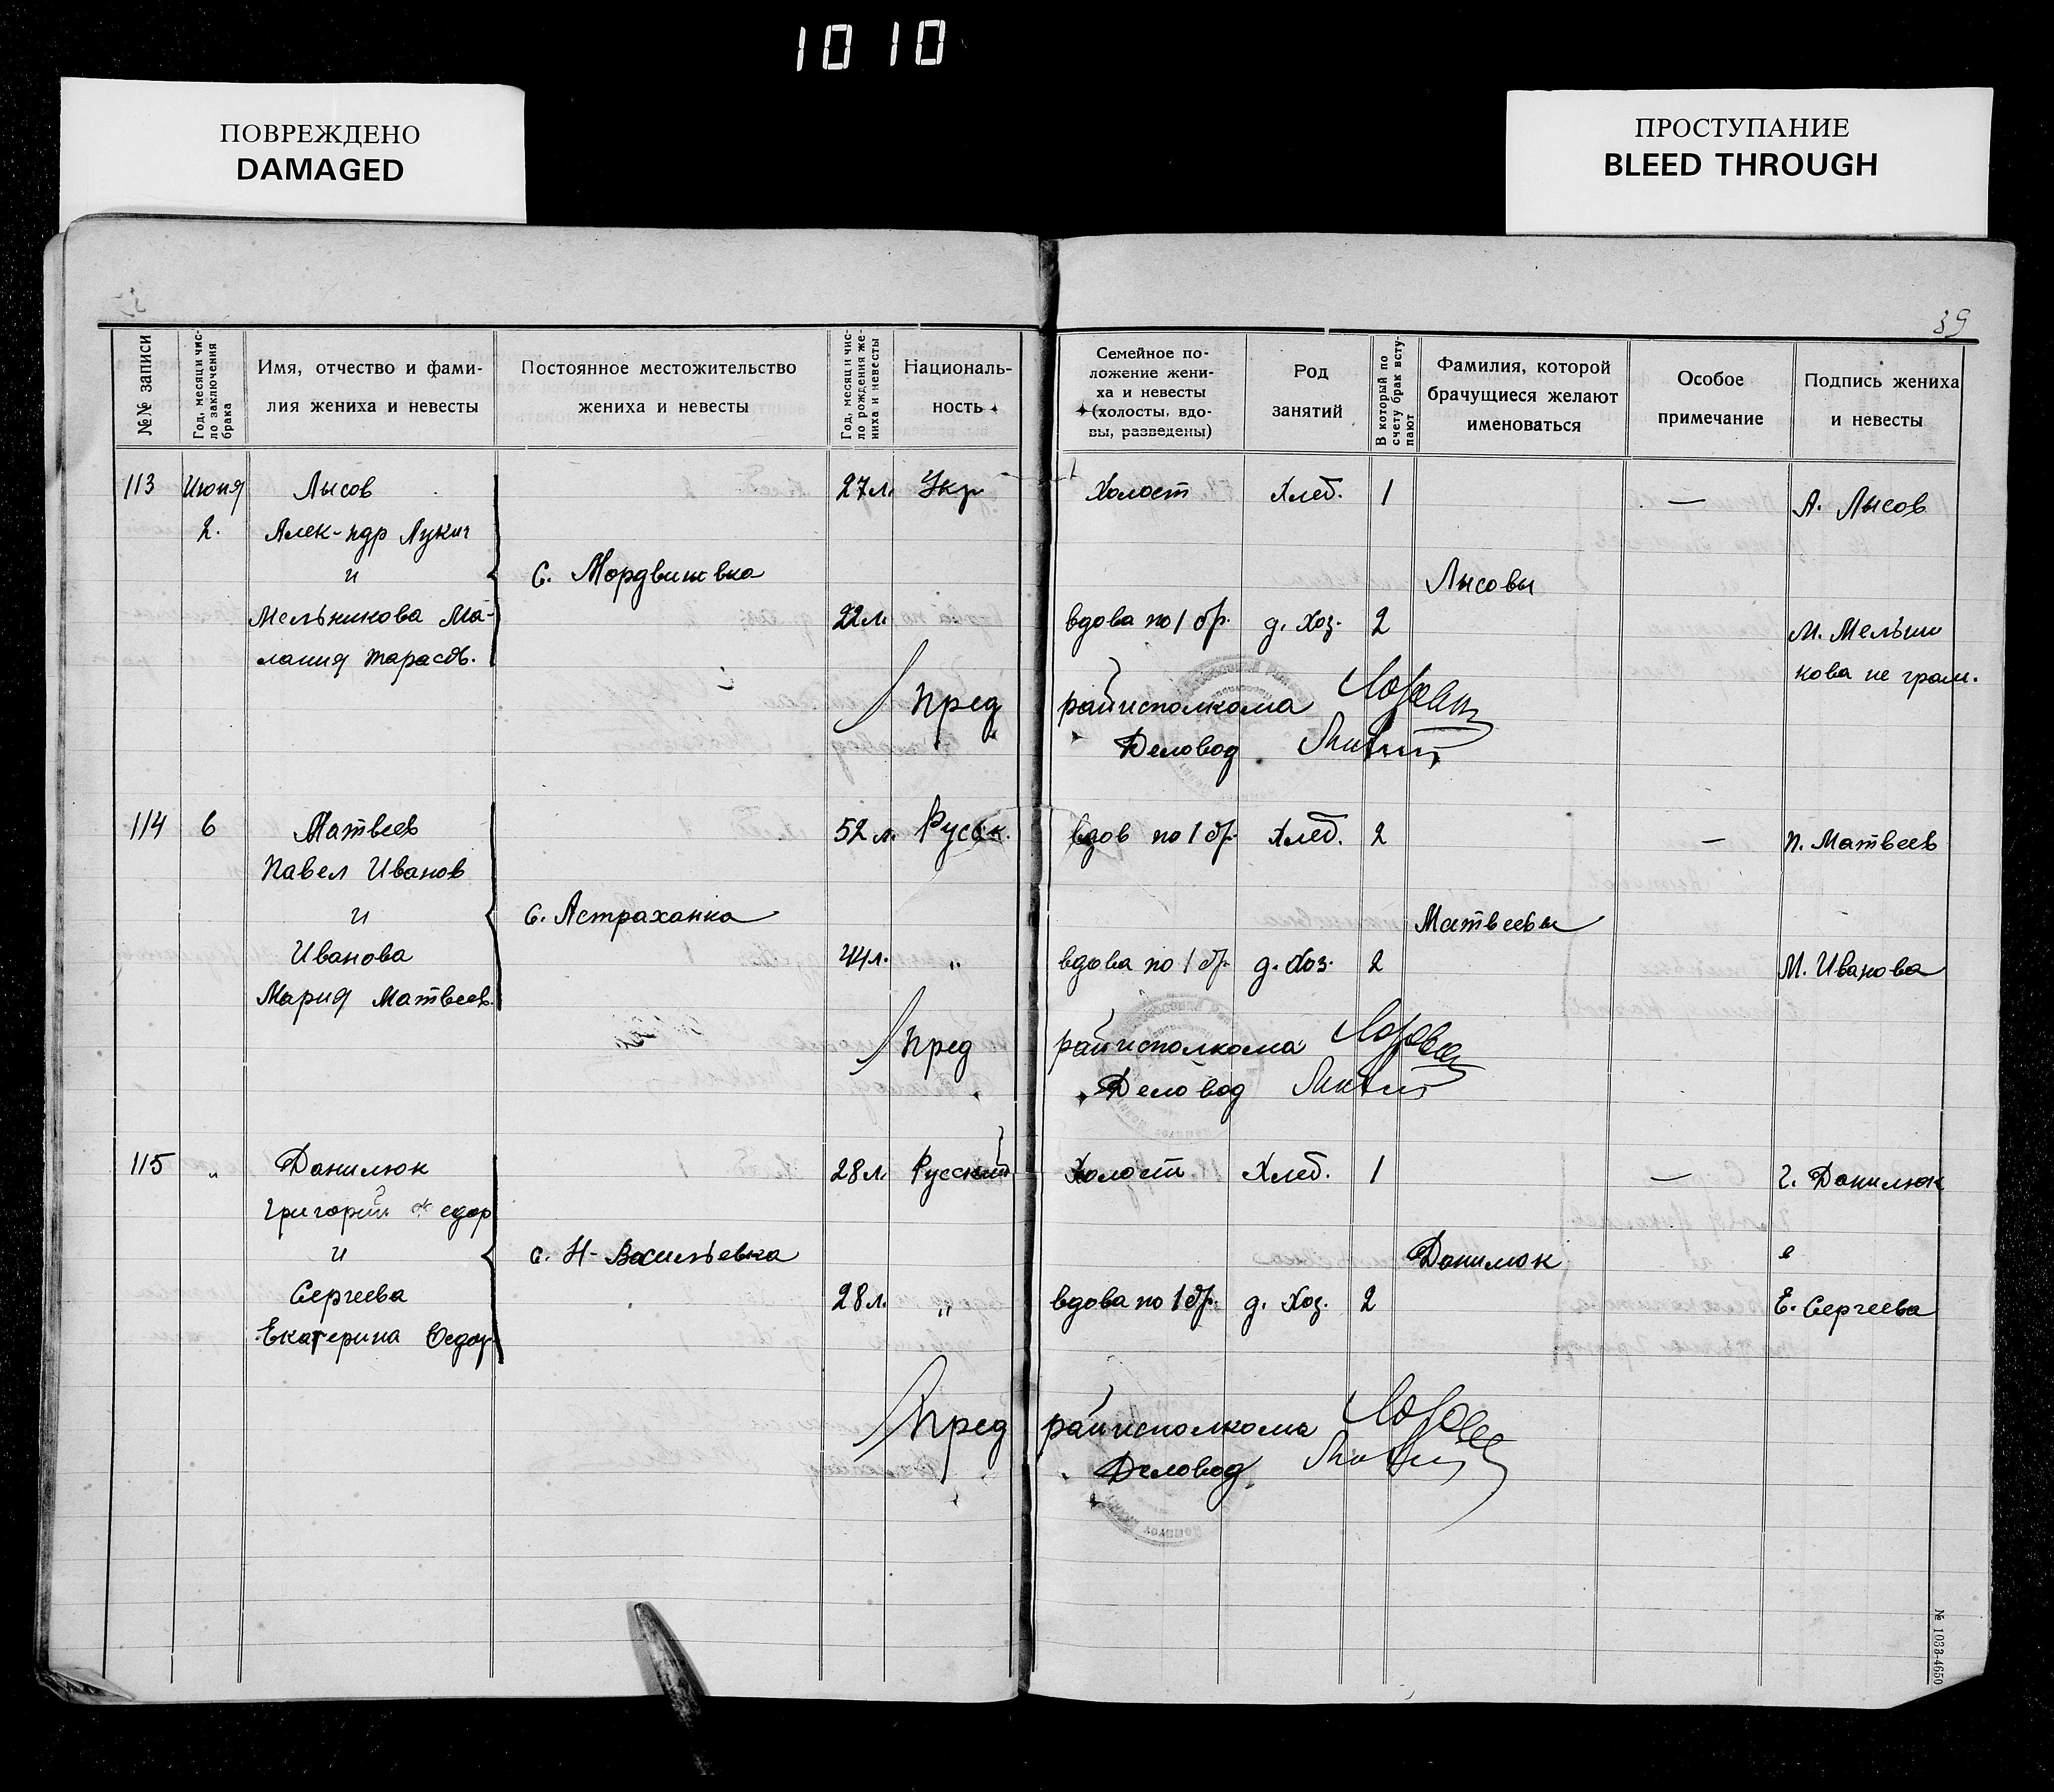 1010
ПОВРЕЖДЕНО
DAMAGED
ПРОСТУПАНИЕ
BLEED THROUGH
39
№№ записи
Год, месяц и чис-
ло заключения
брака
Имя, отчество и фами-
лия жениха и невесты
Постоянное местожительство
жениха и невесты
Год, месяц и чис-
ло рождения же-
ниха и невесты
Националь-
ность
Семейное по-
ложение жени-
ха и невесты
(холосты, вдо-
вы, разведены)
Род
занятий
В который по
счету брак всту-
пают
Фамилия, которой
брачущиеся желают
именоваться
Особое
примечание
Подпись жениха
и невесты
113 Июня Лысов 27 л. Укр Холост Хлеб. 1 — А. Лысов
2. Алек-ндр Лукич
и с. Мордвиновка Лысовы
Мельникова Ма- 22 л. вдова по 1 бр. д. хоз. 2 М. Мельни
лания Тарасов. кова не грам.
Пред райисполкома
Деловод
114 6 Матвеев 52 л. Русск. вдов по 1 бр. Хлеб. 2 — П. Матвеев
Павел Иванов
и с. Астраханка Матвеевы
Иванова 44 л. „ вдова по 1 бр. д. хоз. 2 М. Иванова
Мария Матвеев.
Пред райисполкома
Деловод
115 „ Данилюк 28 л. Русский Холост Хлеб. 1 — Г. Данилюк
Григорий Федор
и с. Н-Васильевка Данилюк
Сергеева 28 л. „ вдова по 1 бр. д. хоз. 2 Е. Сергеева
Екатерина Федор.
Пред райисполкома
Деловод
№ 1033-4650